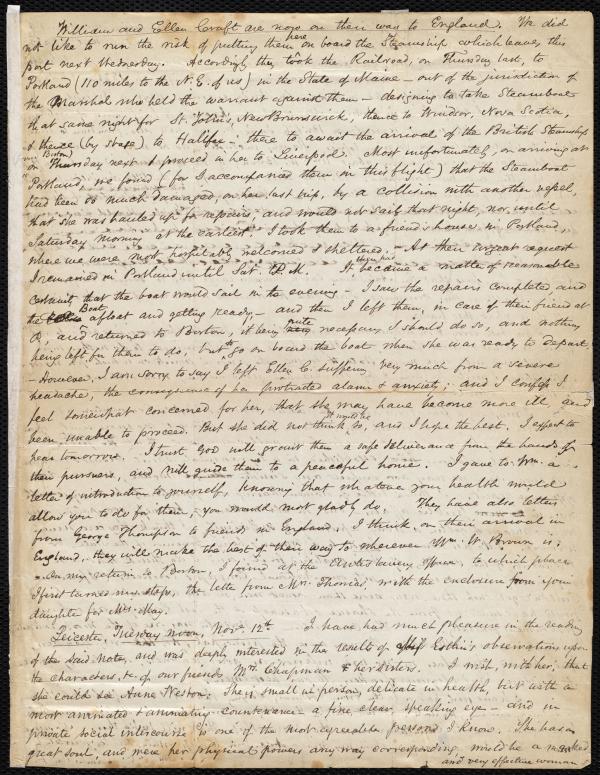 William and Ellen Craft are now on their way to England. We did
not like to run the risk of putting them there on board the Steamship which leaves this
port next Wednesday. Accordingly they took the Railroad, on Thursday last, to
Portland (110 miles to the N.E. of us) in the State of Maine - out of the jurisdiction of
the Marshal who held the warrant against them - designing to take Steamboat
that same night for St. John's, New Brunswick, thence to Windsor, Nova Scotia,
& thence (by stage) to Halifax - there to await the arrival of the British Steamship
from Boston
on Thursday next & proceed in her to Liverpool. Most unfortunately, on arriving at
Portland, we found (for I accompanied them in this flight) that the Steamboat
had been so much damaged, on her last trip, by a collision with another vessel,
that she was hauled up for repairs, and would not sail that night, nor until
Saturday morning at the earliest. I took them to a friend's house, in Portland,
where we were most hospitably welcomed & sheltered. - At their urgent request
I remained in Portland until Sat. P.M. It became a matter of reasonable
certainty that the boat would sail in the evening - I saw the repairs completed and
the Boat afloat and getting ready - and then I left them, in care of their friend at
P., and returned to Boston, it being quite necessary I should do so, and nothing
being left for them to do, but to go on board the boat when she was ready to depart.
- However, I am sorry to say I left Ellen C. suffering very much from a severe
headache, the consequence of her protracted alarm & anxiety; and I confess I
feel somewhat concerned for her, that she may have become more ill, and
been unable to proceed. But she did not think it would be so, and I hope the best. I expect to
hear tomorrow. I trust God will grant them a safe deliverance from the hands of
their pursuers, and will guide them to a peaceful home. I gave to Wm. a
letter of introduction to yourself, knowing that whatever your health would
allow you to do for them, you would most gladly do. They have also letters
from George Thompson to friends in England. I think, on their arrival in
England, they will make the best of their way to wherever Wm. W. Brown is.
- On my return to Boston, I found at the Antislavery Office, to which place
I first turned my steps, the letter from Mrs. Thomas, with the enclosure from your
daughter for Mrs. May.
Leicester, Tuesday noon, Nov. 12th. I have had much pleasure in the reading
of the said note, and was deeply interested in the results of Miss Estlin's observations upon
the characters, &c. of our friends Mrs. Chapman & her sisters. I wish, with her, that
she could see Anne Weston. She is small in person, delicate in health, but with a
most animated & animating countenance - a fine clear speaking eye - and in
private social intercourse is one of the most agreeable persons I know. She has a
great soul, and were her physical powers any way corresponding, would be a marked
and very effective woman